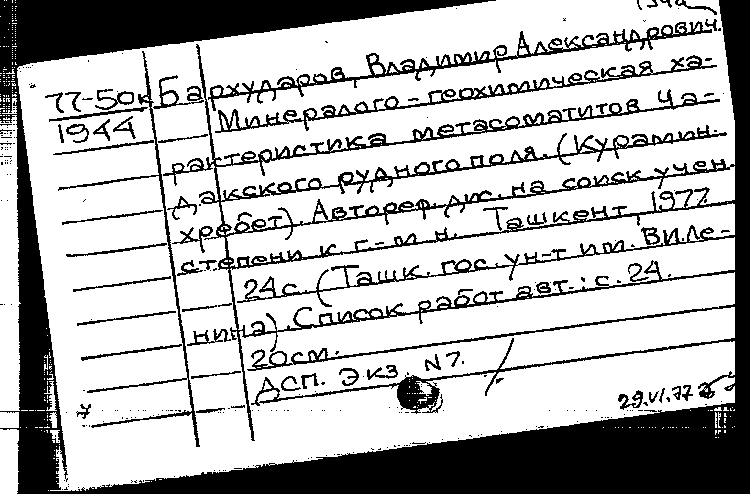 77-50к Бархударов, Владимир Александрович.
1944 Минералого-геохимическая ха-
рактеристика метасоматитов Ча-
дакского рудного поля. (Курамин.
хребет). Автореф. дис. на соиск учен.
степени к. г.-м. н. Ташкент, 1977
24 с. (Ташк. гос. ун-т им. В.И. Ле-
нина). Список работ авт.: с. 24.
20 см.
ДСП. Экз. N 7.
29.VI.77